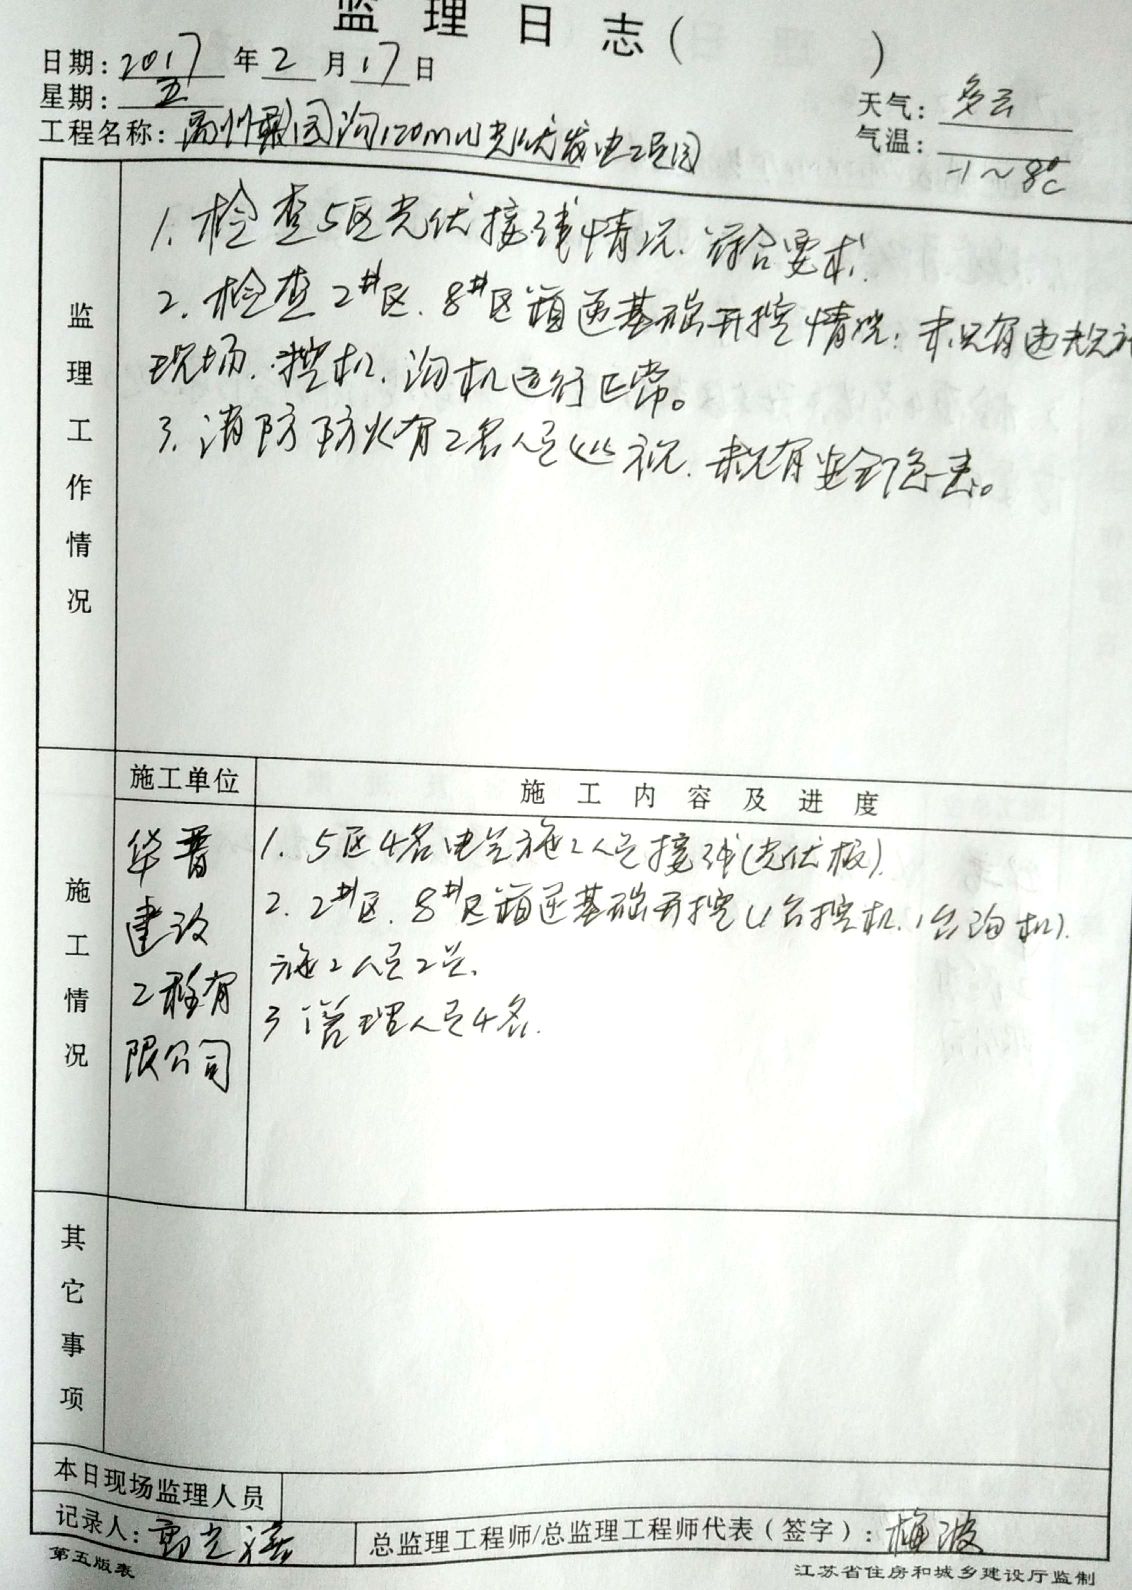 监理日志( )
日期: 2017 年 2 月 17 日
星期: 五
天气: 多云
工程名称: 禹州梨园沟120MW光伏发电项目
气温: -1~8℃
监理工作情况
1. 检查5区光伏接线情况、符合要求.
2. 检查2#区. 8#区箱逆基础开挖情况; 未见有违规
现场. 挖机. 沟机运行正常。
3. 消防防火有2名人员巡视. 未见有安全隐患。
施工单位
施工内容及进度
施工情况
华晋
建设
工程有
限公司
1. 5区4名电气施工人员接线(光伏板).
2. 2#区. 8#区箱逆基础开挖(1台挖机. 1台沟机).
施工人员2名.
3 管理人员4名.
其它事项
本日现场监理人员
记录人:
总监理工程师/总监理工程师代表(签字): 梅波
第五版表
江苏省住房和城乡建设厅监制